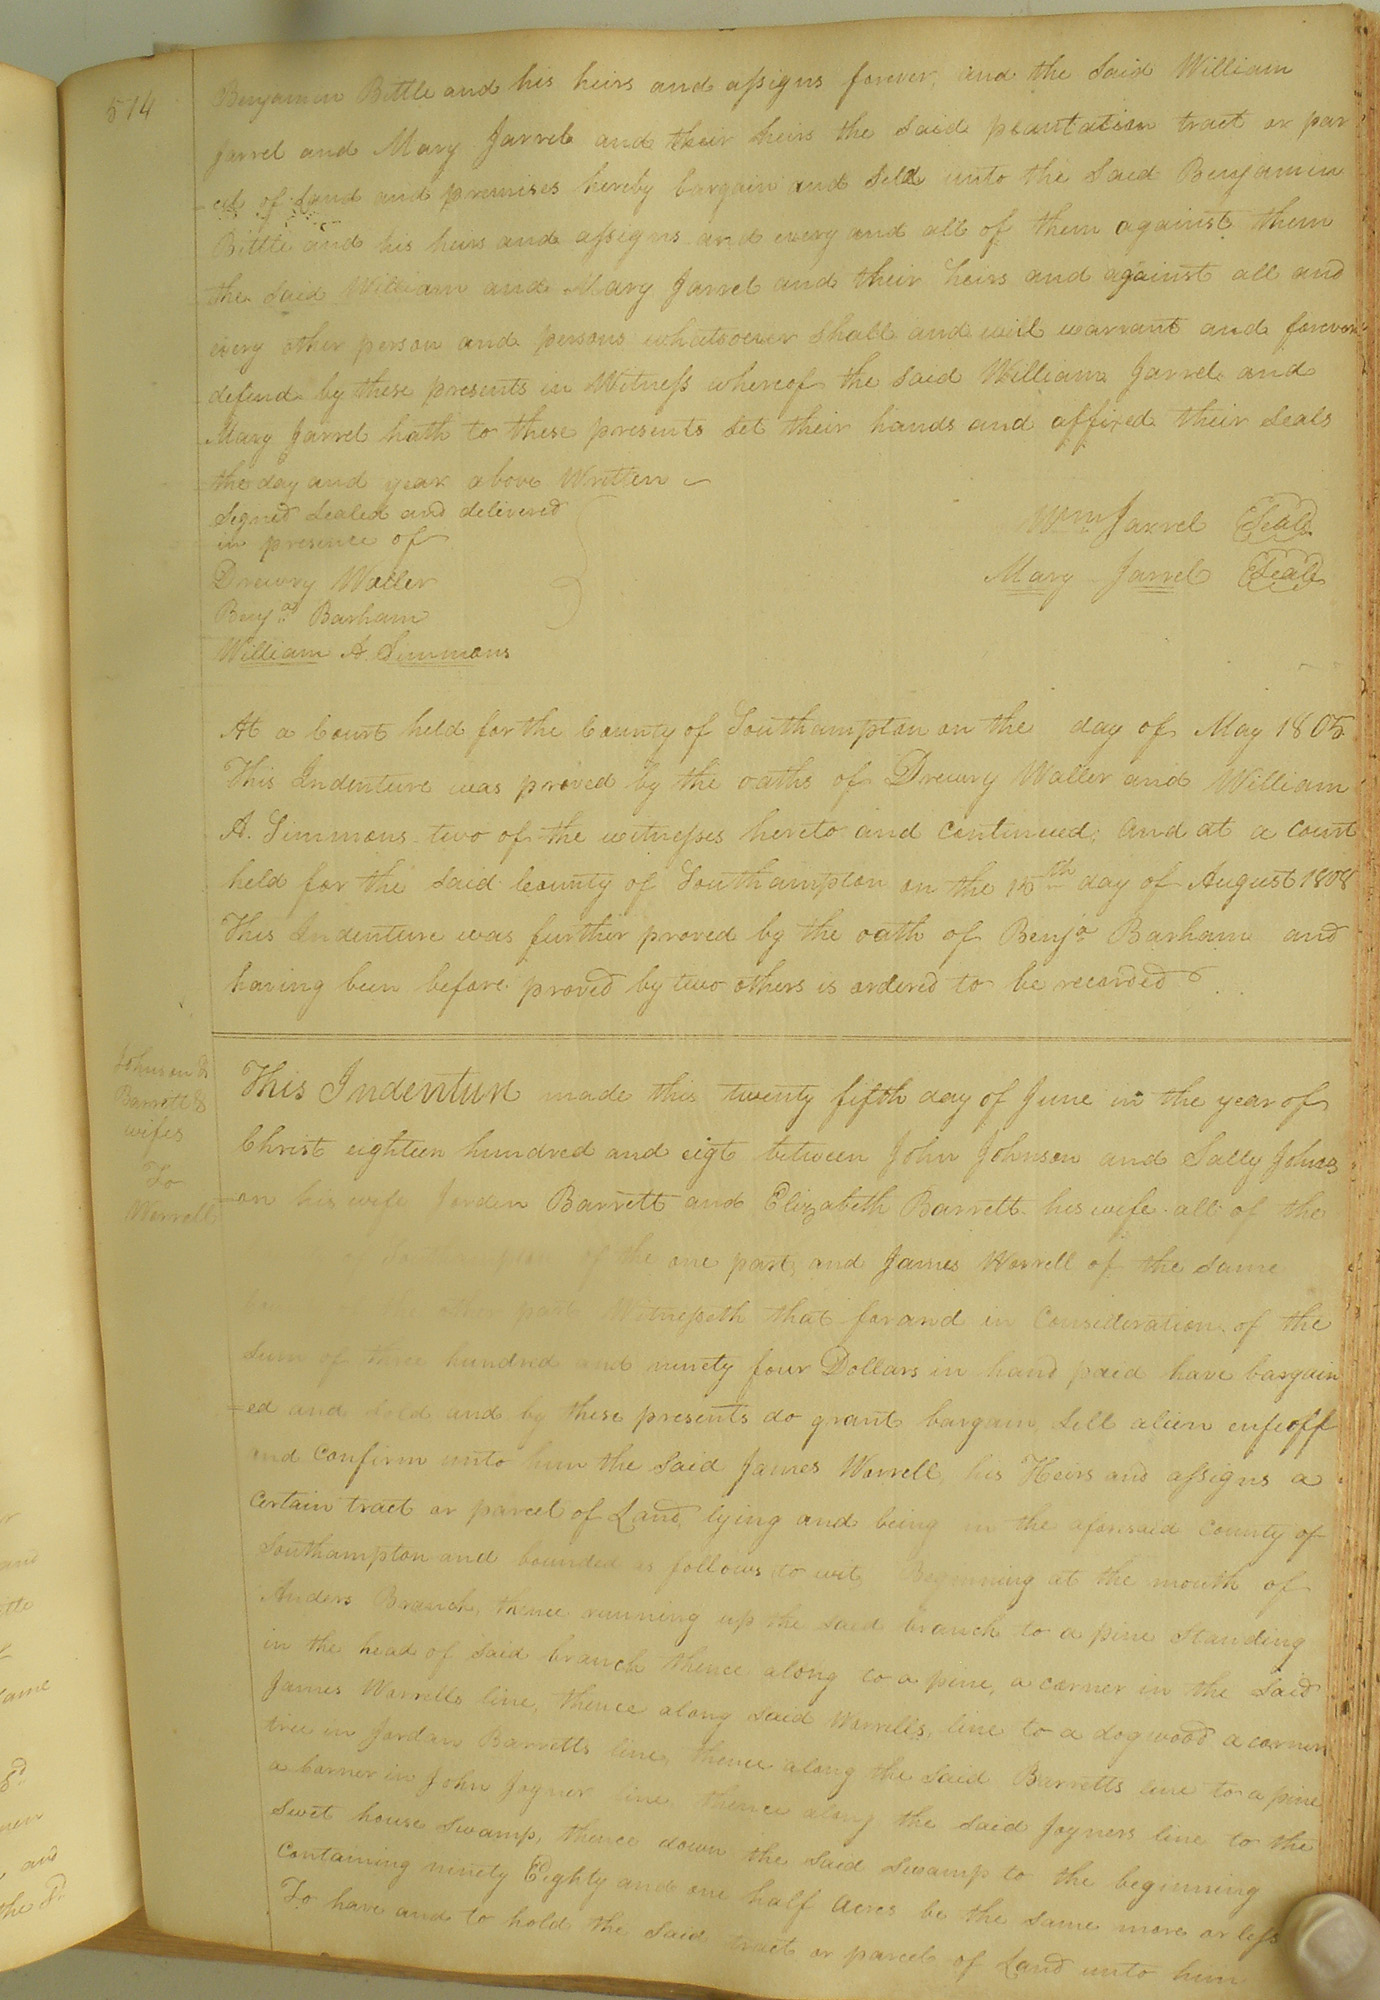 514
Benjamin Bittle and his heirs and assigns forever, and the said William
Jarrel and Mary Jarrel and their heirs the said plantation tract or par
-cel of Land and premises hereby bargain and Sell unto the Said Benjamin
Bittle and his heirs and assigns and every and all of them against them
the said William and Mary Jarrel and their heirs and against all and
every other person and persons whatsoever shall and will warrant and forever
defend by these presents in Witness whereof the said William Jarrel and
Mary Jarrel hath to these presents set their hands and affixed their seals
the day and year above Written
Signed Sealed and delivered
in presence of
Wm Jarrel Seal
Drewry Waller
Mary Jarrel Seal
Benja Barham
William A. Simmons
At a Court held for the County of Southampton on the day of May 1805
This Indenture was proved by the oaths of Drewry Waller and William
A. Simmons two of the witnesses hereto and continued; and at a court
held for the said County of Southampton on the day of August 1808
This Indenture was further proved by the oath of Benja Barham and
having been before proved by two others is ordered to be recorded
Johnson &
Barrett &
wifes
To
Worrell
This Indenture made this twenty fifth day of June in the year of
Christ eighteen hundred and eigt between John Johnson and Sally Johns
-on his wife Jorden Barrett and Elizabeth Barrett his wife all of the
Southampton of the one part, and James Worrell of the same
the other part Witnesseth that for and in Consideration of the
Sum of three hundred and ninety four Dollars in hand paid have bargain
-ed and sold and by these presents do grant bargain, Sell alien enfeoff
and Confirm unto him the Said James Worrell, his Heirs and assigns a
Certain tract or parcel of Land lying and being in the aforesaid County of
Southampton and bounded as follows to wit, Beginning at the mouth of
Anders Branch, thence running up the said branch to a pine Standing
in the head of said branch thence along to a pine, a corner in the said
James Worrells line, thence along said Worrells, line to a dogwood a corner
tree in Jordan Barretts line, thence along the said Barretts line to a pine
a Corner in John Joyner line thence along the said Joyners line to the
Swet house swamp, thence down the said swamp to the beginning
Containing ninety Eighty and one half acres be the same more or less
To have and to hold the said tract or parcel of Land unto him